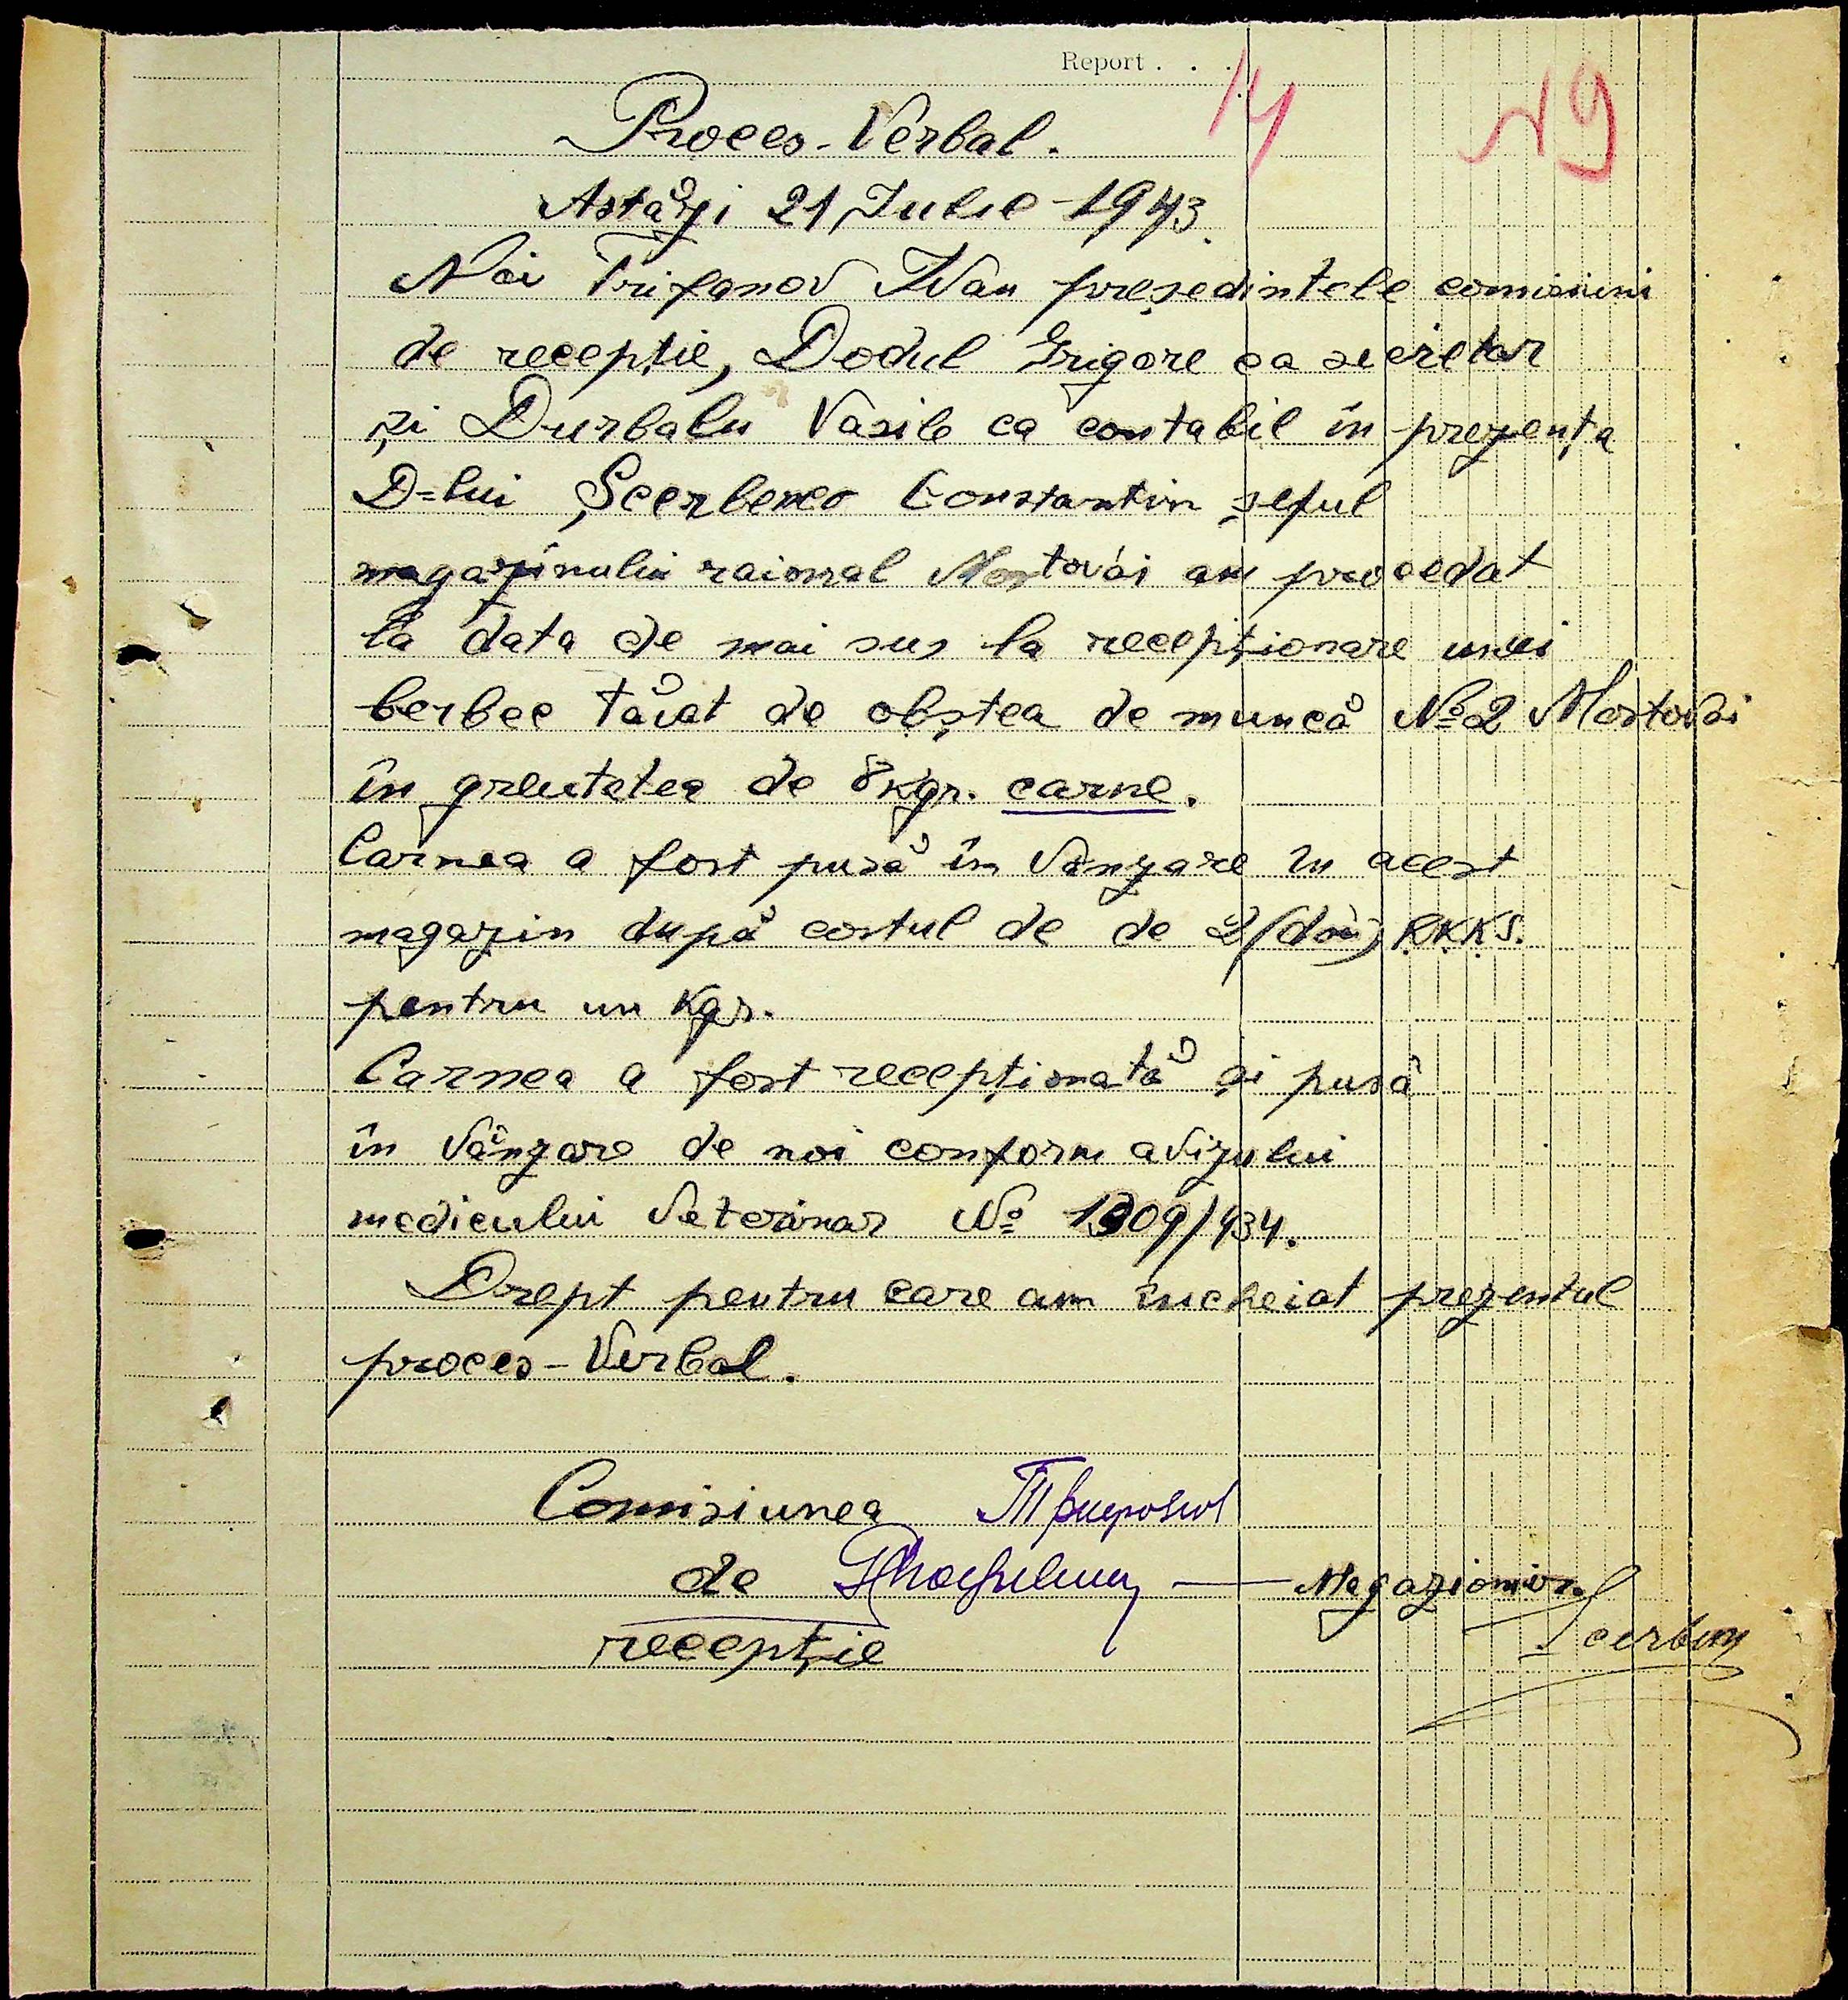 Report . . .
14 19
Proces-Verbal.
Astăzi 21 Iulie 1943.
Noi Trifanov Ivan președintele comisiuni
de recepție, Dodul Grigore ca secretar
și Durbalu Vasile ca contabil în prezența
D=lui Șcerbenco Constantin șeful
magazinului raional Mostovoi am procedat
la data de mai sus la recepționare unui
berbec tăiat de obștea de muncă No 2 Mostovoi
în greutatea de 8 kgr. carne.
Carnea a fost pusă în vânzare în acest
magazin după costul de de 2 (doi) R.K.K.S.
pentru un kgr.
Carnea a fost recepționată și pusă
în vânzare de noi conform avizului
medicului veterinar No 1309/434.
Drept pentru care am încheiat prezentul
proces-verbal.
Comisiunea
de — Magazioner
recepție